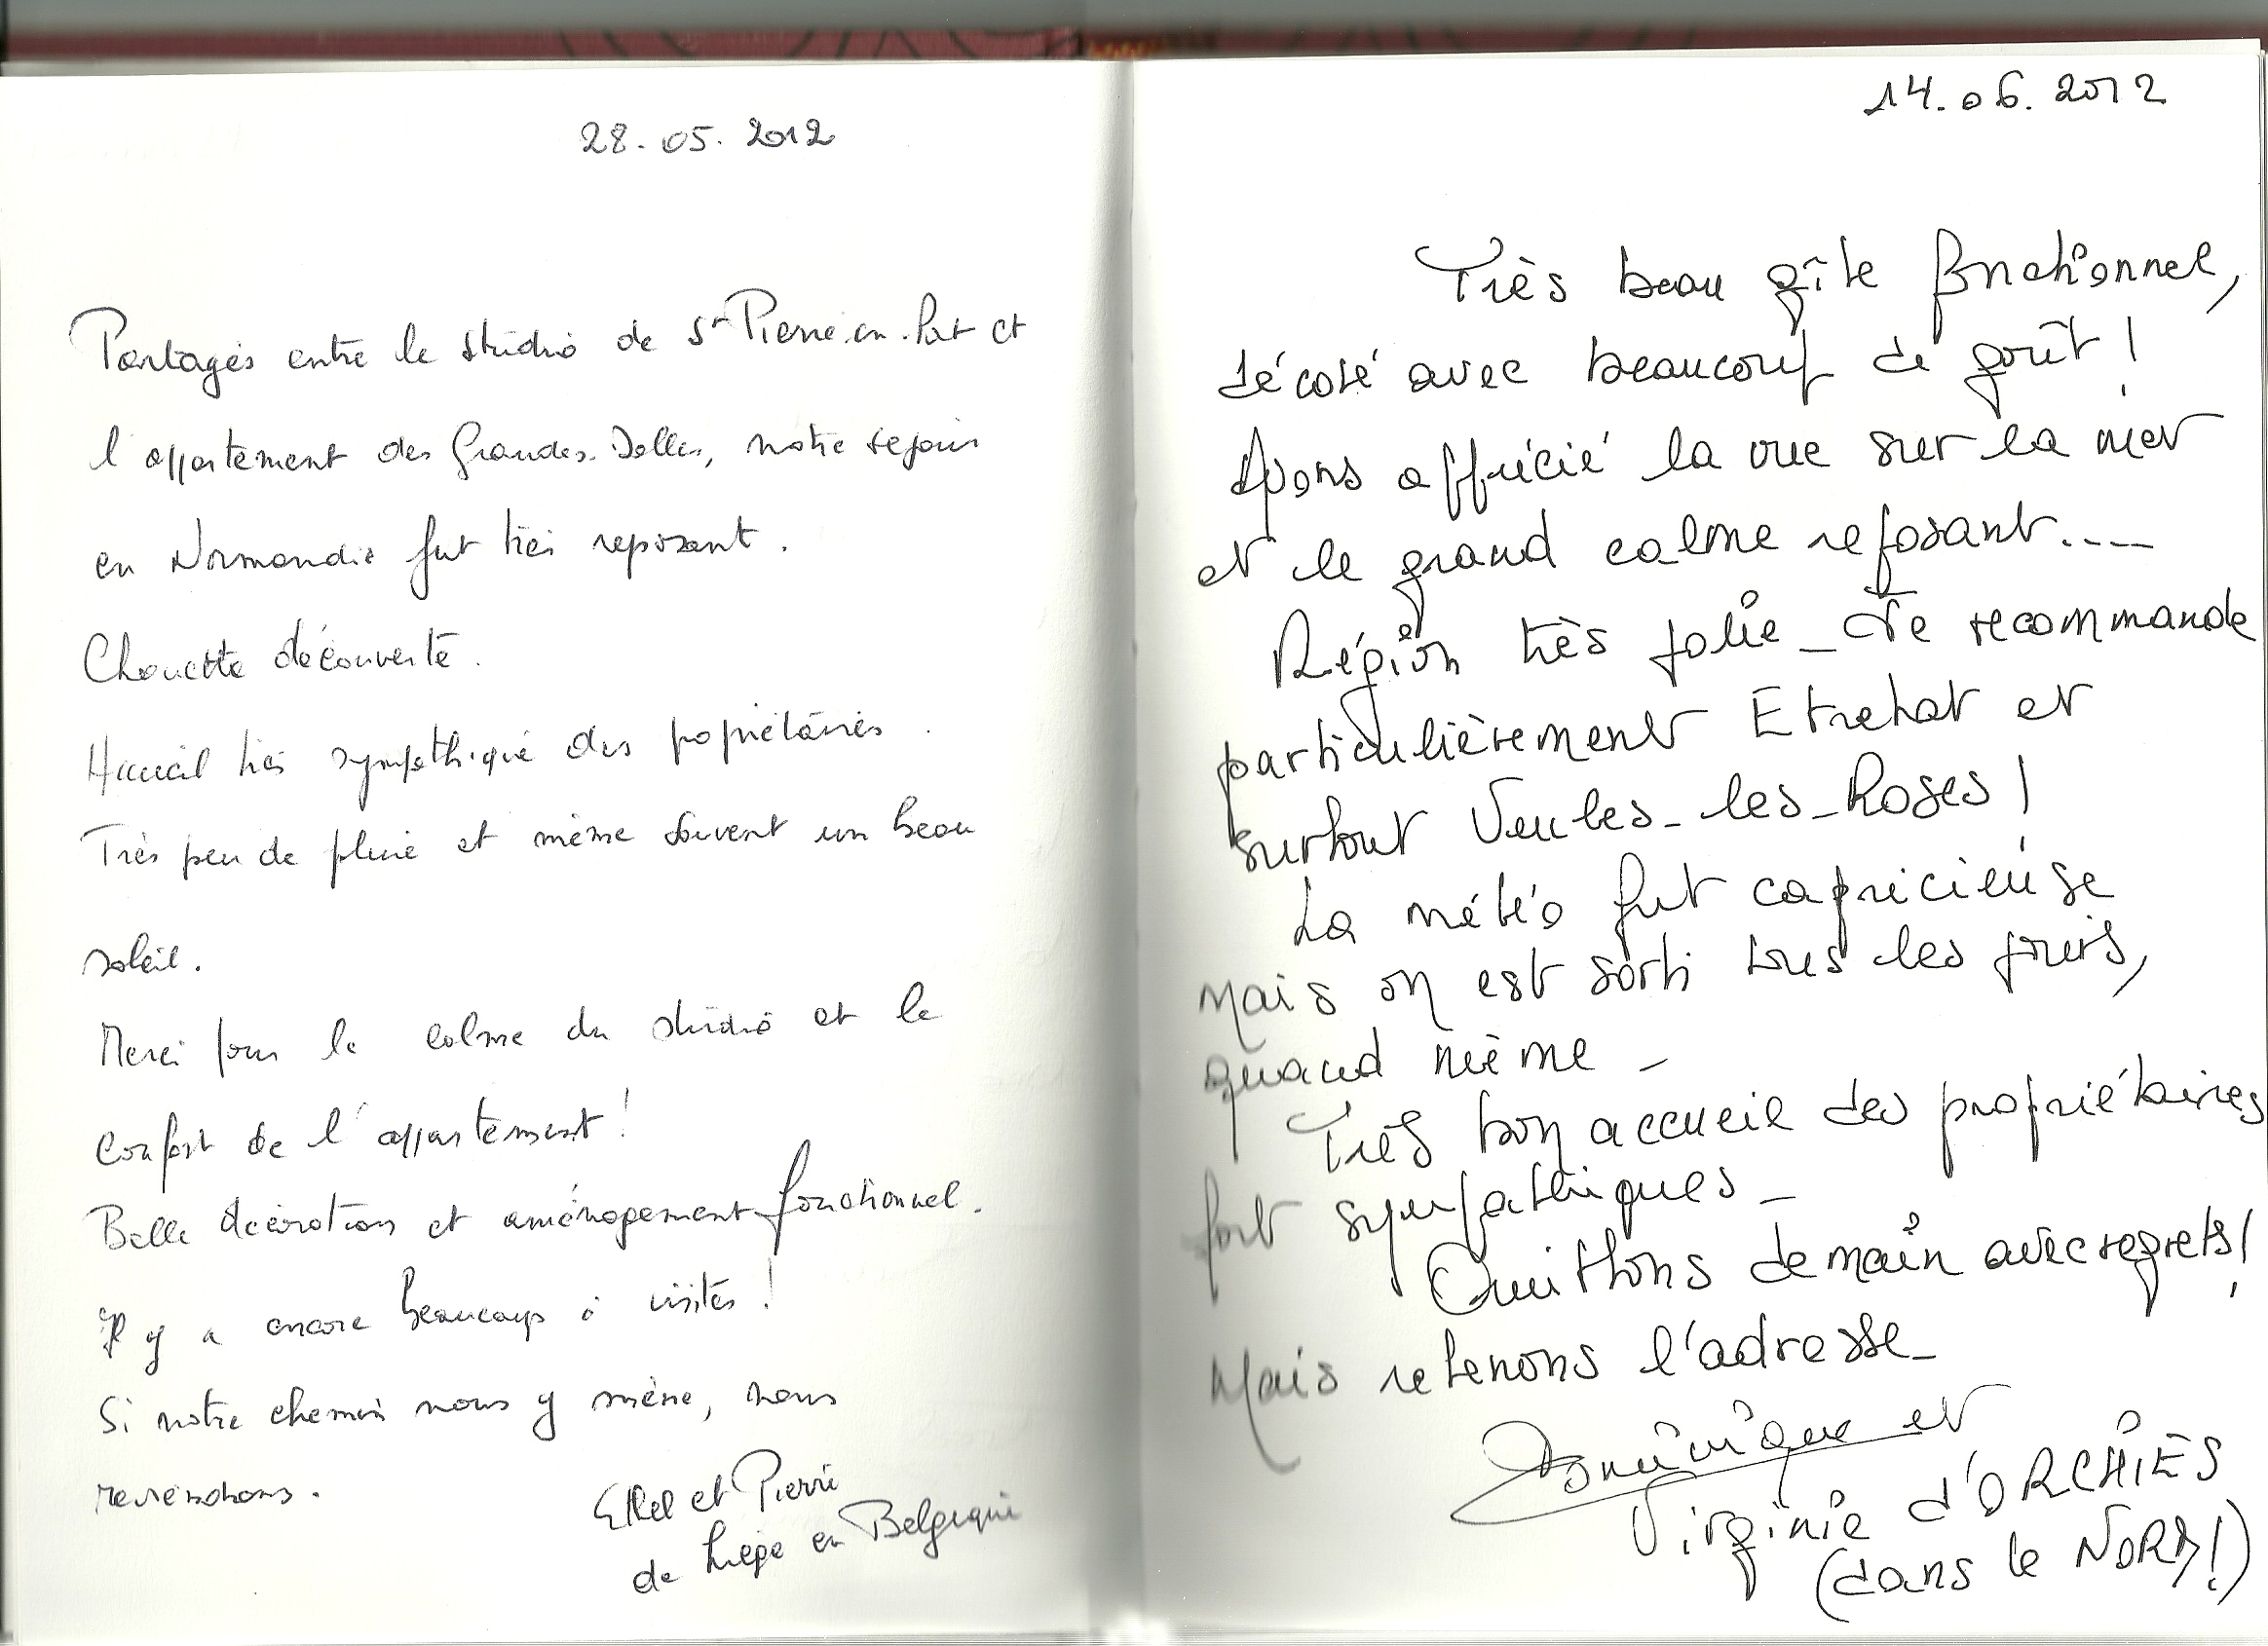 28.05.2012
Partagés entre le studio de St Pierre.en.Port et
l'appartement des Grandes.Dalles, notre séjour
en Normandie fut très reposant.
Chouette découverte.
Accueil très sympathique des propriétaires.
Très peu de pluie et même souvent un beau
soleil.
Merci pour le calme du studio et le
confort de l'appartement!
Belle décoration et aménagement fonctionnel.
Il y a encore beaucoup à visiter!
Si notre chemin nous y mène, nous
reviendrons.
Ethel et Pierre
de Liège en Belgique
14.06.2012
Très beau gîte fonctionnel,
décoré avec beaucoup de goût!
Avons apprécié la vue sur la mer
et le grand calme reposant....
Région très jolie _ Je recommande
particulièrement Etretat et
surtout Veules-les-Roses!
La météo fut capricieuse
mais on est sorti tous les jours,
quand même _
Très bon accueil des propriétaires
fort sympathiques _
Quittons demain avec regrets!
Mais retenons l'adresse _
Dominique et
Virginie d'ORCHIES
(dans le NORD!)